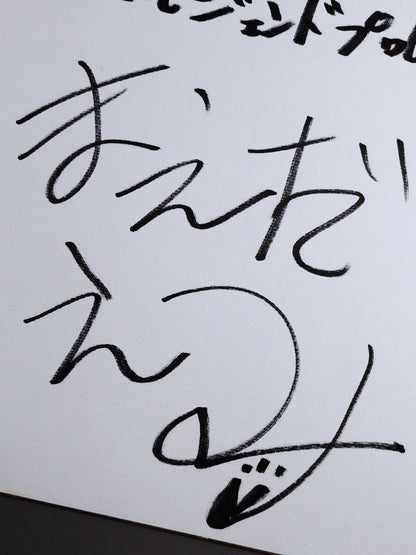 ジェンドプロ
まえだ
えみ